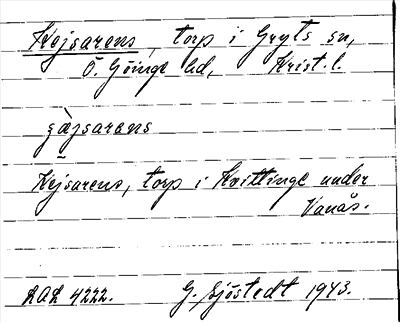 Kejsarens, torp i Gryts sn,
Ö. Göinge hd, Krist. l.
gàjsarens
Kejsarens, torp i Kvittinge under
Vanås.
LAL 4222. G. Sjöstedt 1943.